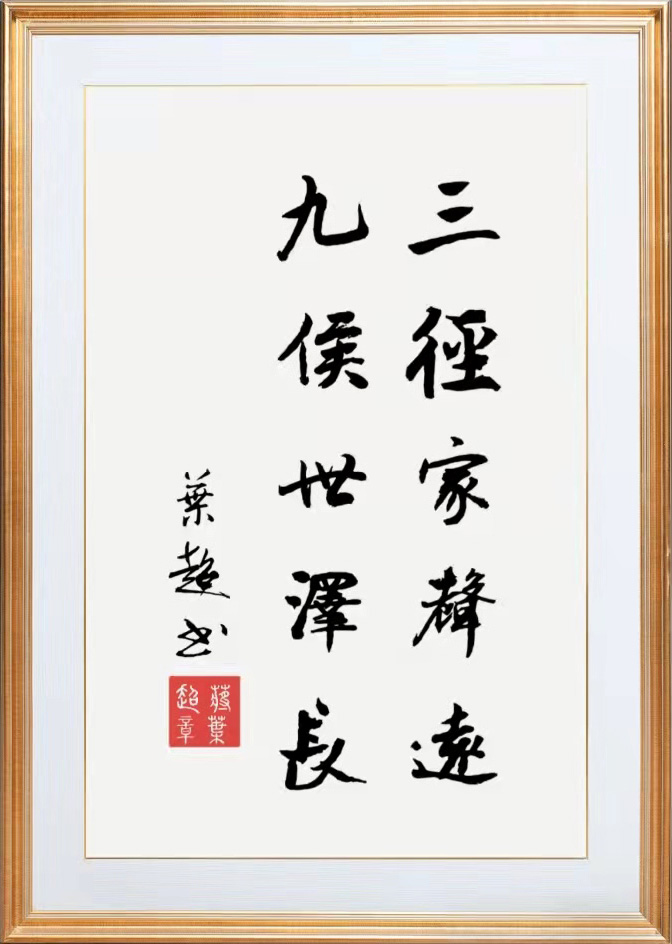 三徑家聲遠
九侯世澤長
葉超书
蔣葉超章